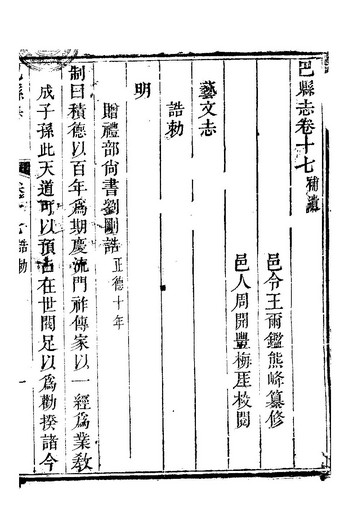 巴縣志卷十七補遺
邑令王爾鑑熊峰纂修
邑人周開豐梅厓校閱
藝文志
誥勅
明
贈禮部尚書劉剛誥正德十年
制曰積德以百年爲期慶流門祚傳家以一經爲業敎
成子孫此天道可以預占在世閥足以爲勸揆諸今
誥勅
一